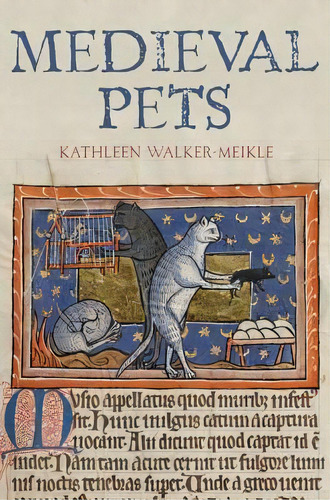 MEDIEVAL
PETS
KATHLEEN WALKER-MEIKLE
Musio appellatus quod muribus infest
sit. Hunc uulgus catum a captura
uocant. Alii dicunt quod captat id ē
uidet. Nam tam acute cernit ut fulgore lumi
nis noctis tenebras super. Unde a greco uenit